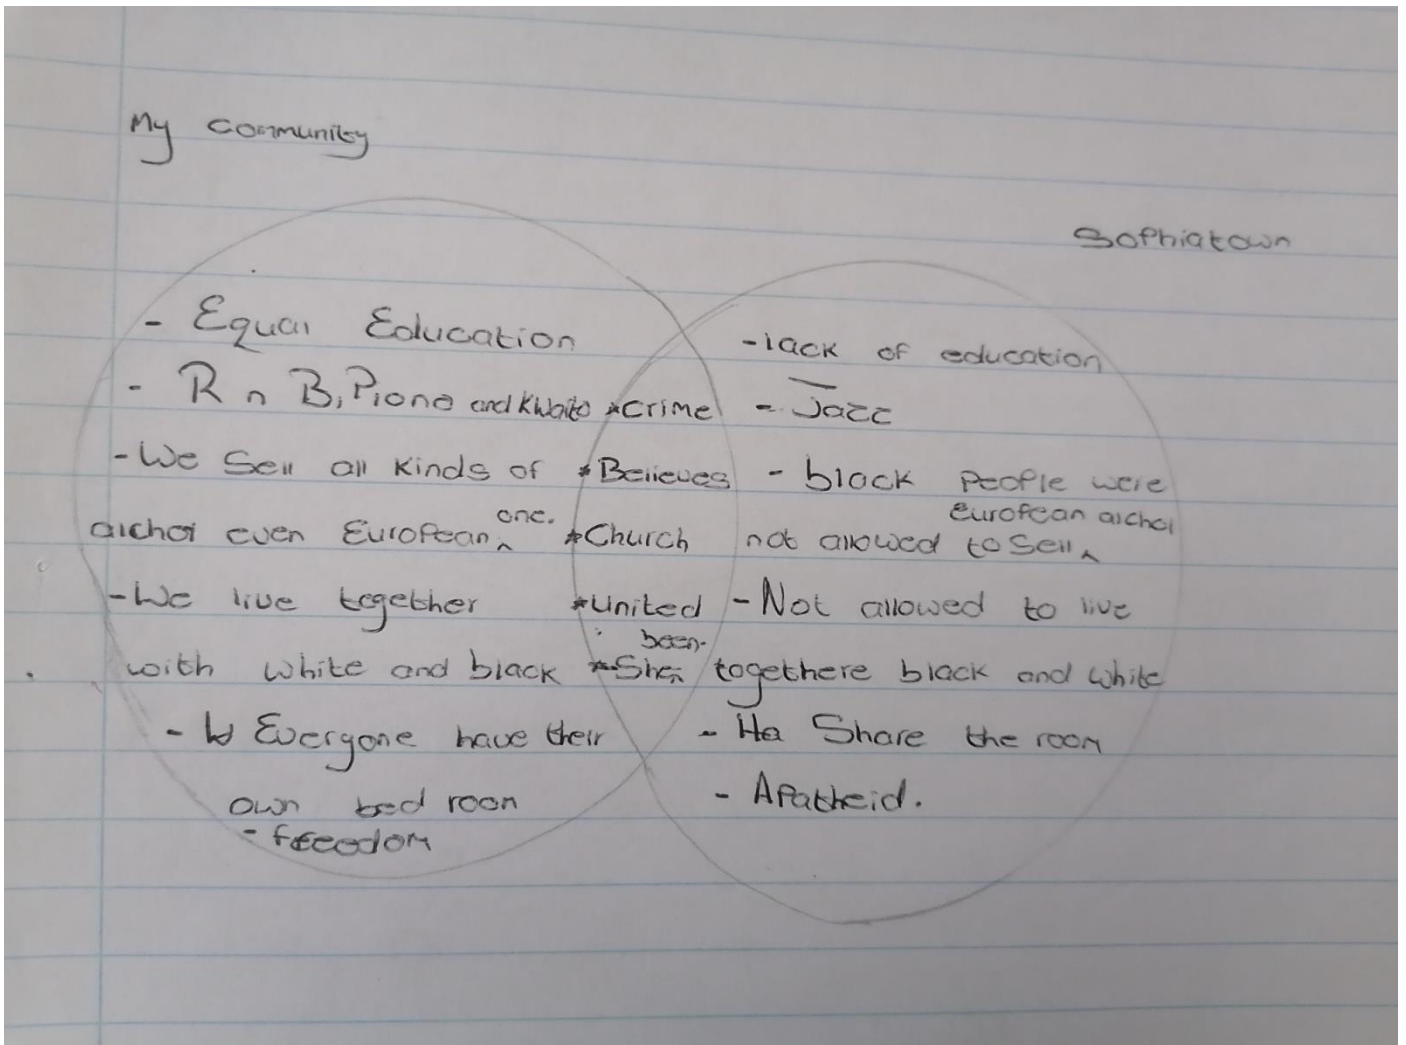 My community
Sophiatown
- Equal Education
- R n B, Piono and Kwaito
- We Sell all Kinds of
alchol even European one.
- We live together
with white and black
- Everyone have their
own bed room
- freedom
*crime
*Believes
*Church
*United
been
- lack of education
- Jazz
- black people were
not allowed to sell european alchol
- Not allowed to live
togethere black and white
- Share the room
- Apatheid.